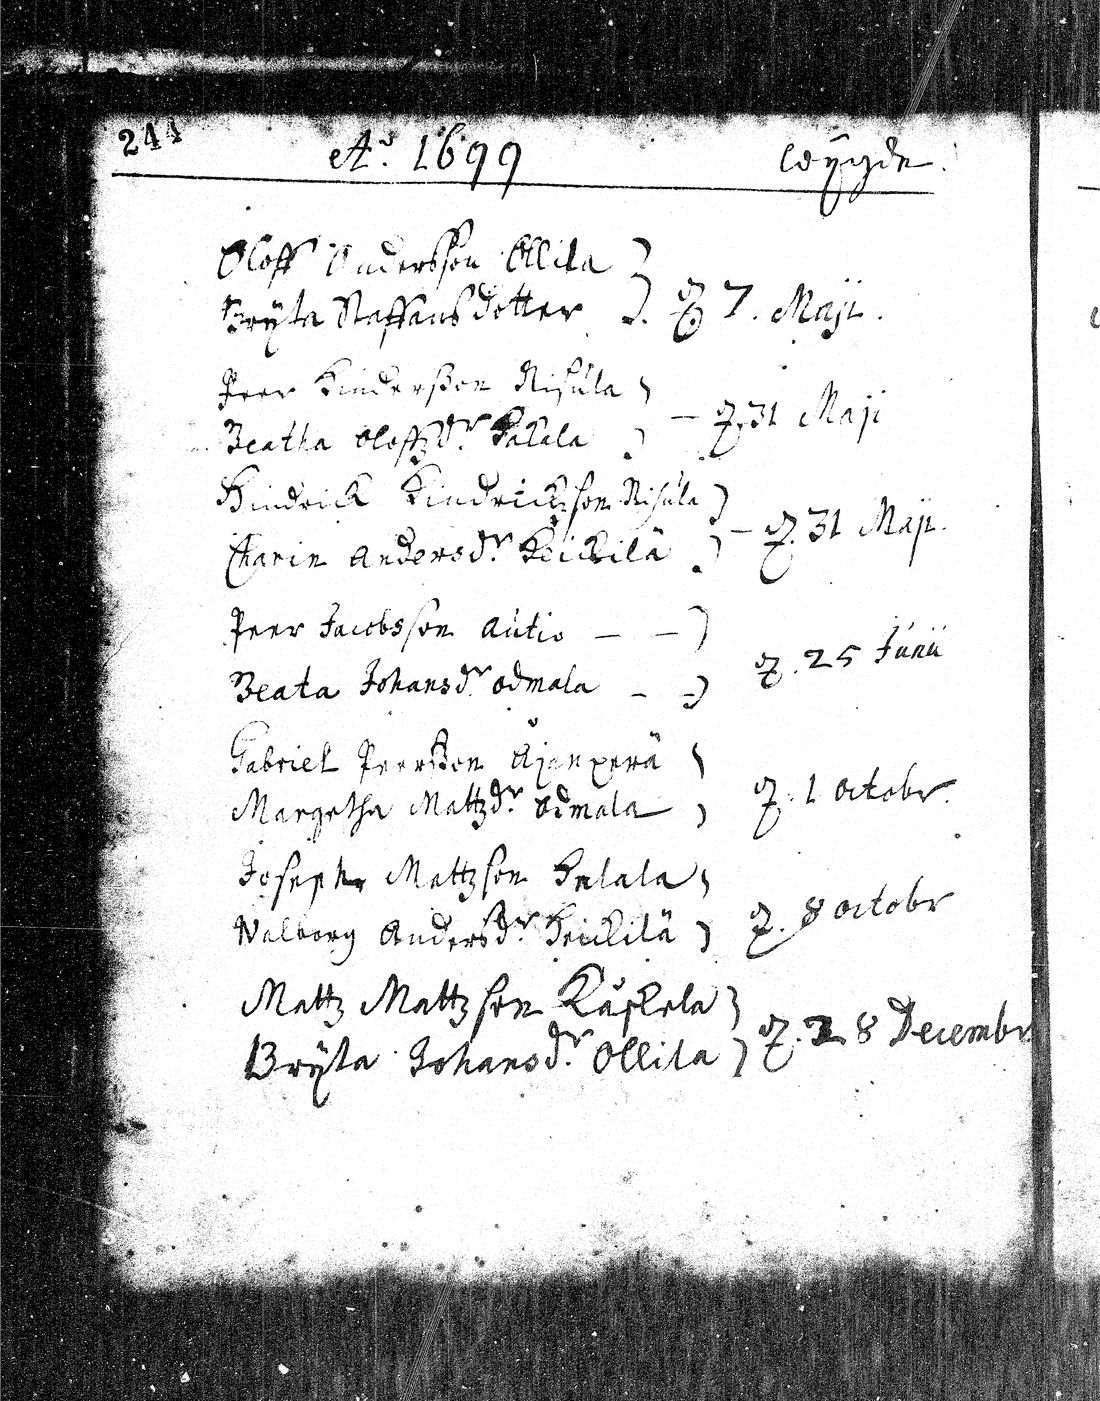 244
Ao. 1699 Wÿgde.
Oloff Andersson Ollila
Brÿta Staffans dotter d. 7. Maji.
Peer Hinderßon Nisula
Beatha Oloffzdr. Kalala d. 31 Maji
Hindrick Hindrickzson Nisula
Charin Andersdr. Heickilä d. 31 Maji.
Peer Jacobsson Autio
Beata Johansdr. Odmala d. 25 Junii
Gabriel Peerßon Äjänperä
Margetha Mattzdr. Odmala d. 1 Octobr.
Joseph Mattzson Kalala
Walborg Andersdr. Heickilä d. 8 Octobr
Mattz Mattzson Kåskela
Brÿta Johansdr. Ollila d. 28 Decembr